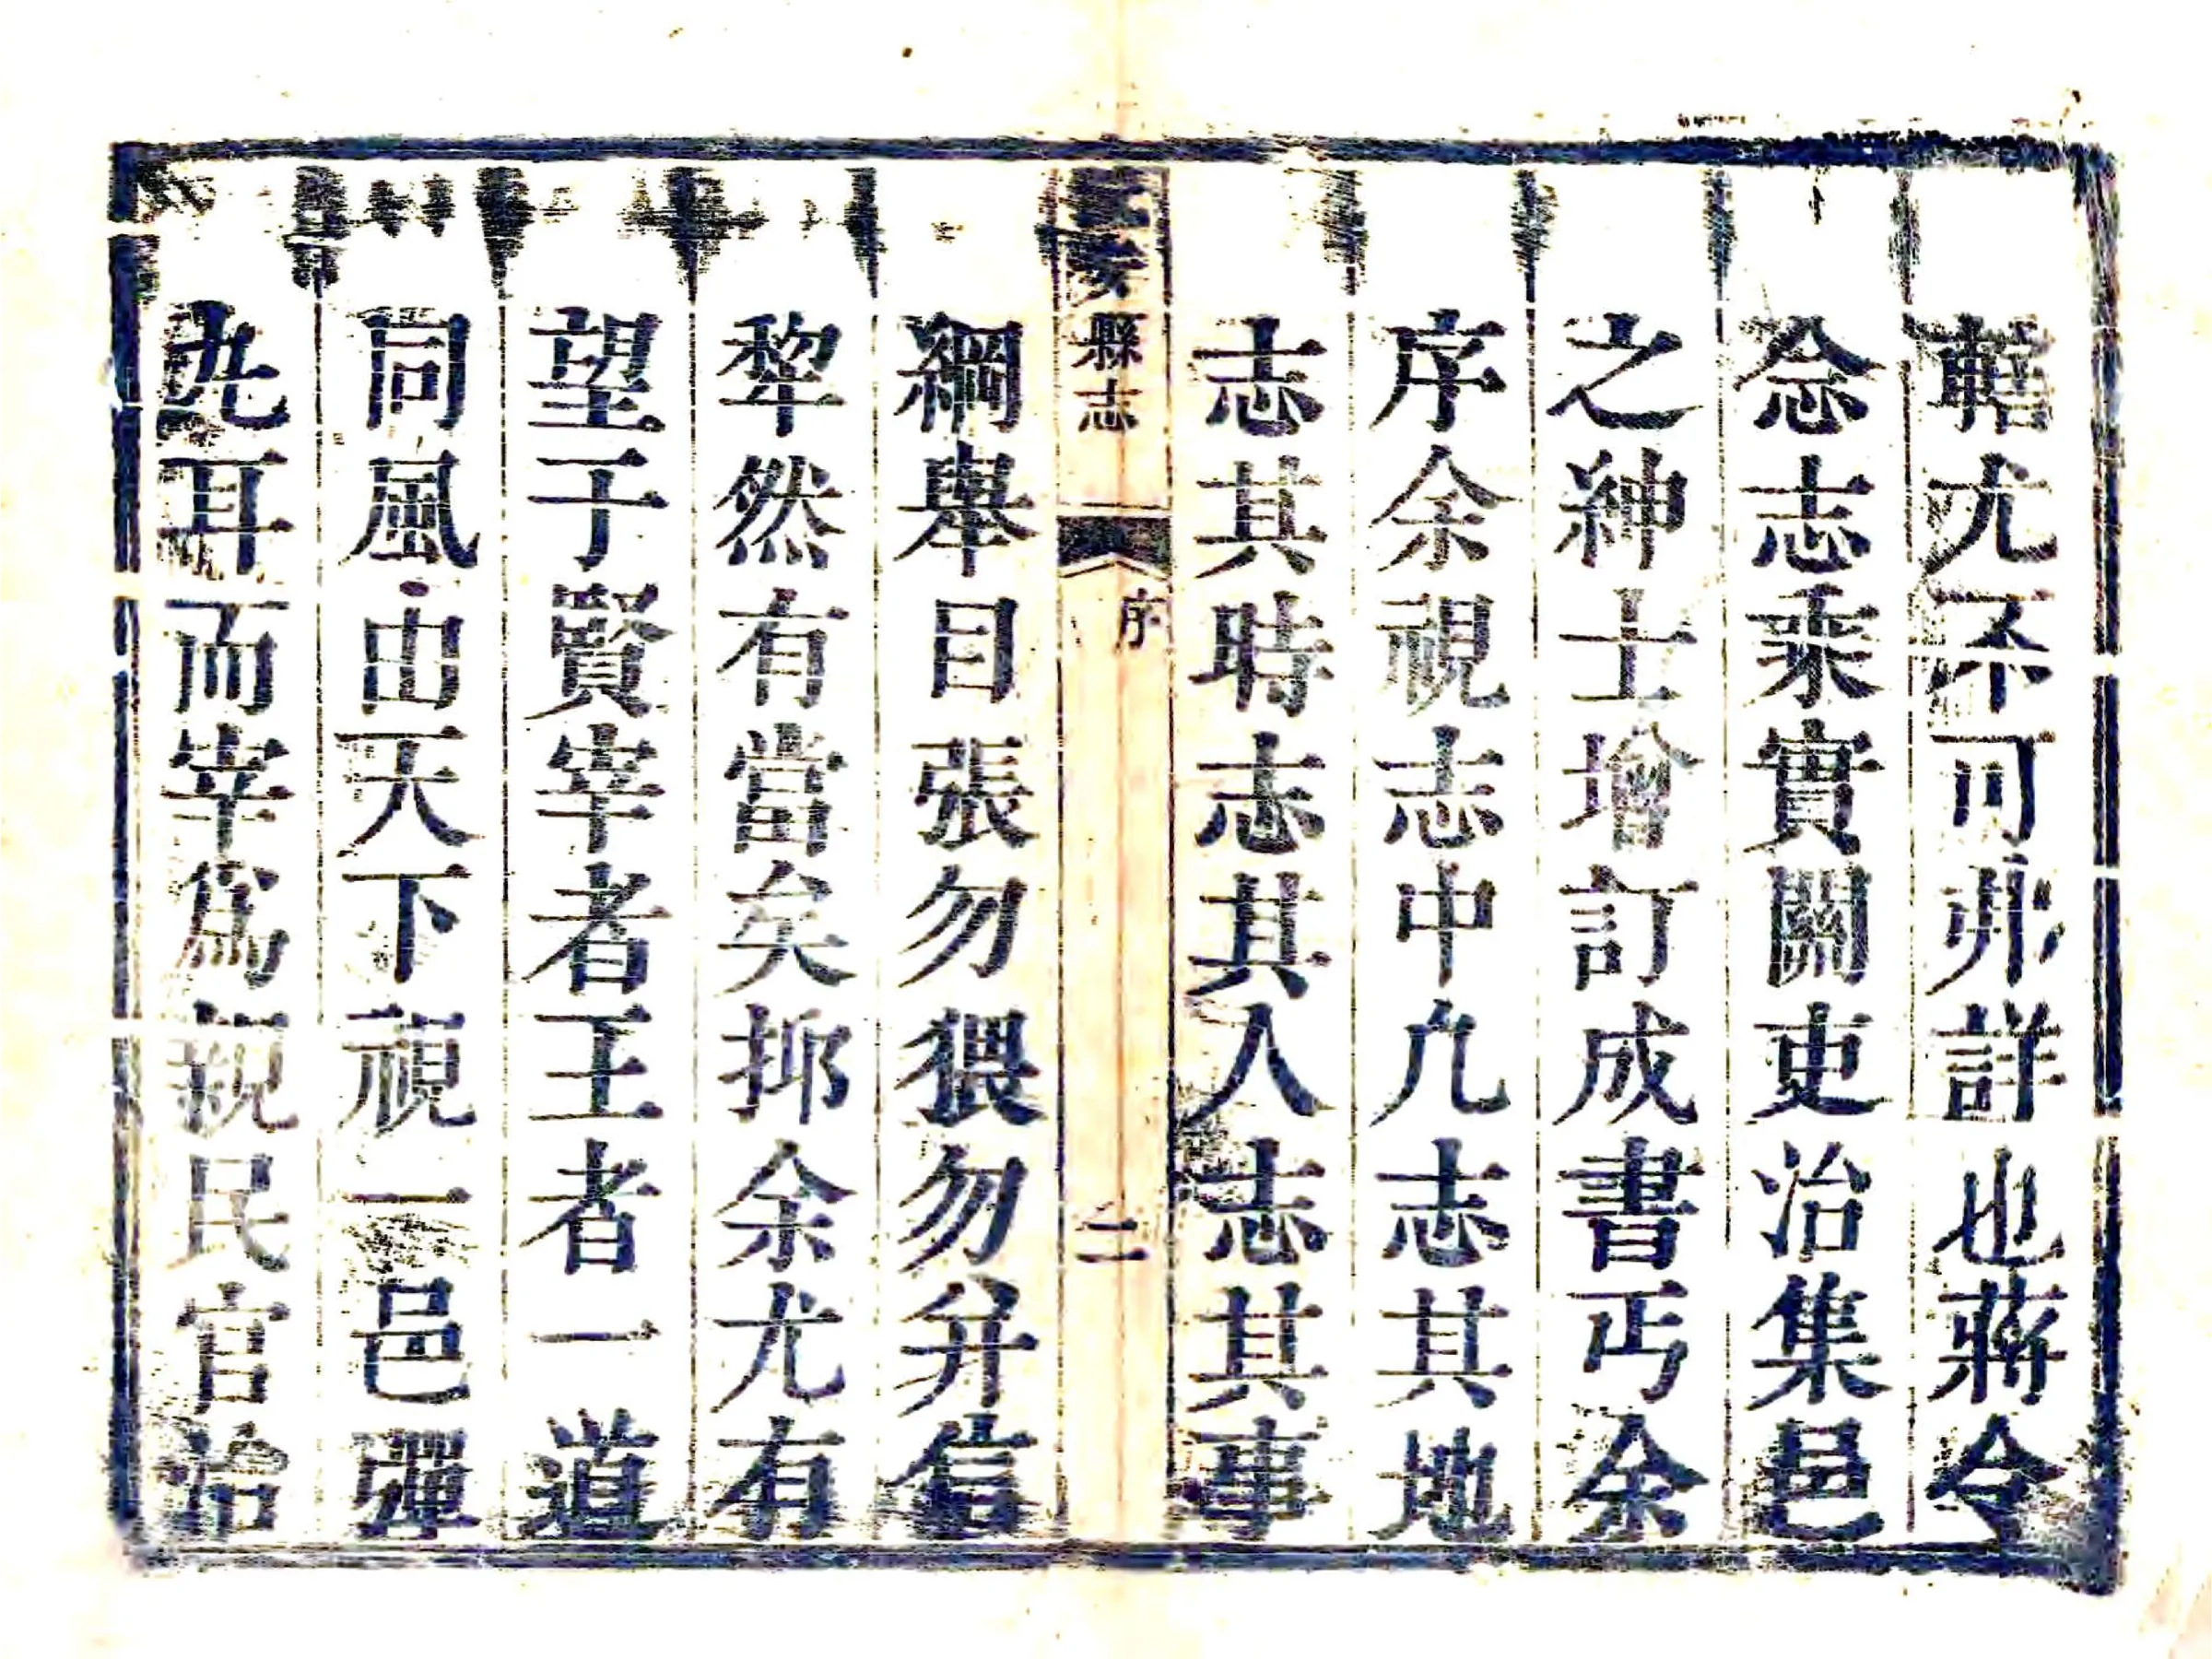 轄尤不可弗詳也蔣令
念志乘實關吏治集邑
之紳士增訂成書丐余
序余視志中凢志其地
志其時志其人志其事
安縣志
序
二
綱舉目張勿猥勿弁信
犂然有當矣抑余尤有
望于賢宰者王者一道
同風由天下視一邑彈
九耳而宰爲親民官治